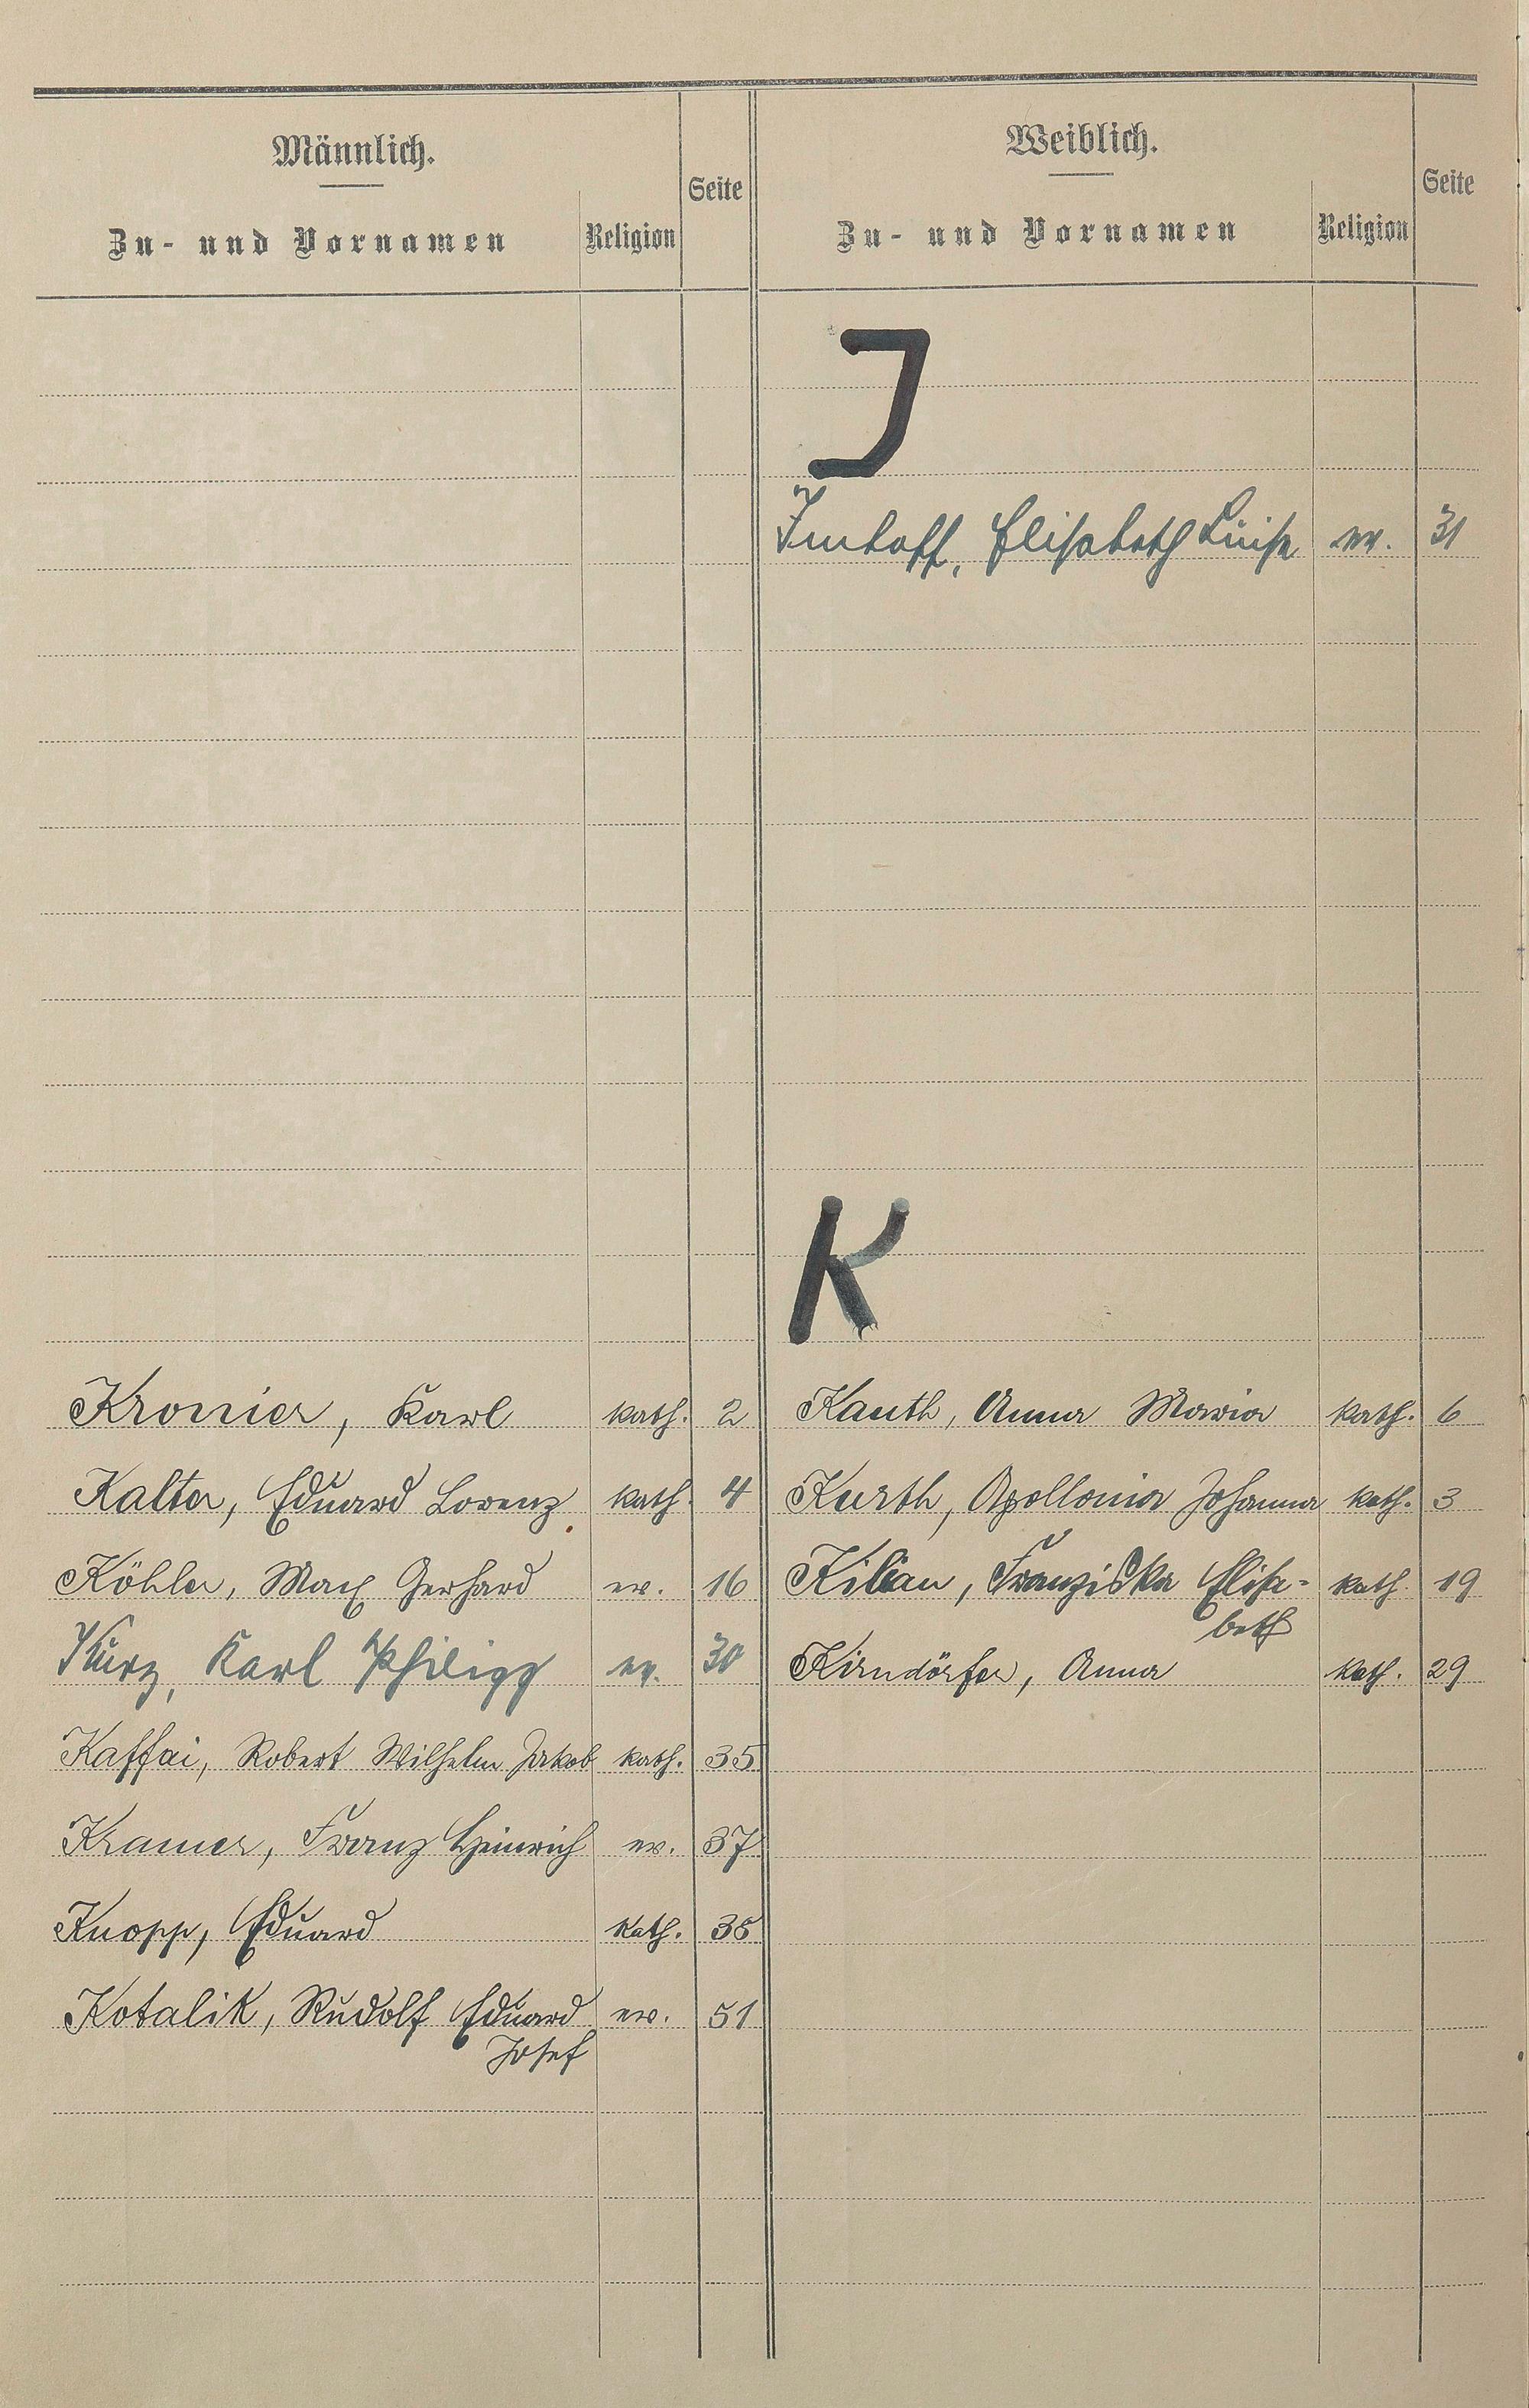 Männlich.
Zu- und Vornamen Religion Seite
Weiblich.
Zu- und Vornamen Religion Seite
J
Imhoff, Elisabeth Luise ev. 31
K
Kronier, Karl kath. 2
Kalter, Eduard Lorenz kath. 4
Köhler, Max Gerhard ev. 16
Kurz, Karl Philipp ev. 30
Kaffai, Robert Wilhelm Jakob kath. 35
Kramer, Franz Heinrich ev. 37
Knopp, Eduard kath. 38
Kotalik, Rudolf Eduard ev. 51
Josef
Kauth, Anna Maria kath. 6
Kurth, Apollonia Johanna kath. 3
Kilian, Franziska Elisa- kath. 19
beth
Kirndörfer, Anna kath. 29